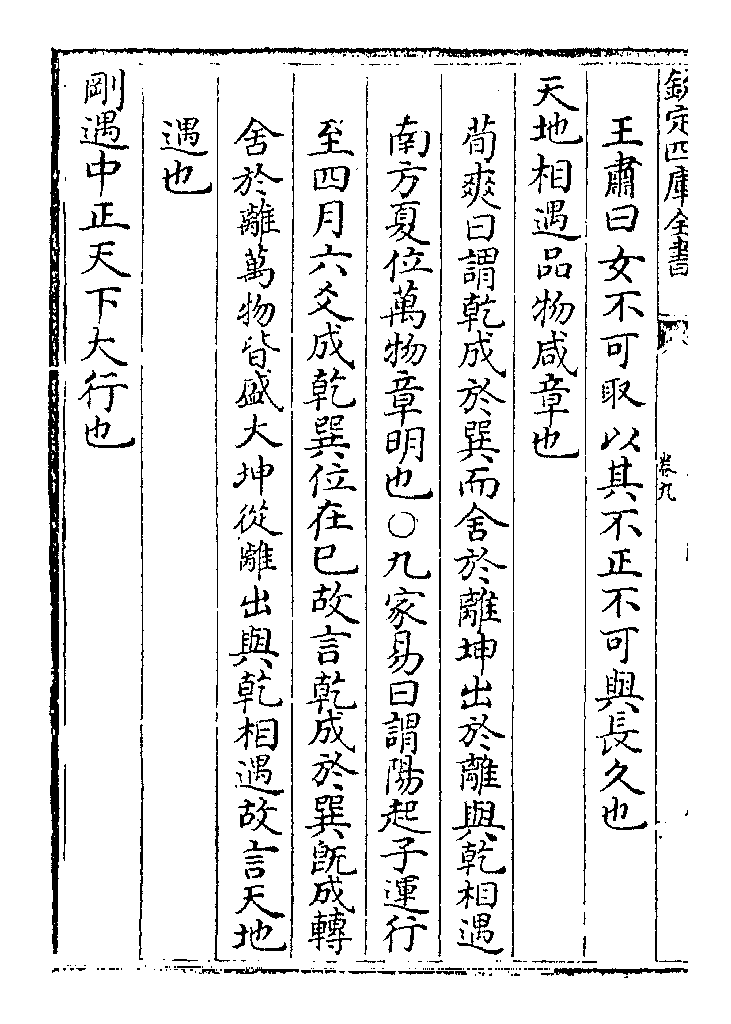 欽定四庫全書
卷九
王肅曰女不可取以其不正不可與長久也
天地相遇品物咸章也
荀爽曰謂乾成於巽而舍於離坤出於離與乾相遇
南方夏位萬物章明也○九家易曰謂陽起子運行
至四月六爻成乾巽位在巳故言乾成於巽既成轉
舍於離萬物皆盛大坤從離出與乾相遇故言天地
遇也
剛遇中正天下大行也